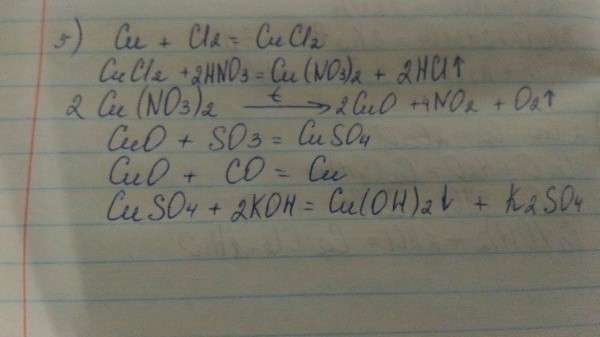 5) Cu + Cl2 = CuCl2
CuCl2 + 2HNO3 = Cu(NO3)2 + 2HCl↑
2 Cu(NO3)2 —t→ 2CuO + 4NO2 + O2↑
CuO + SO3 = CuSO4
CuO + CO = Cu
CuSO4 + 2KOH = Cu(OH)2↓ + K2SO4